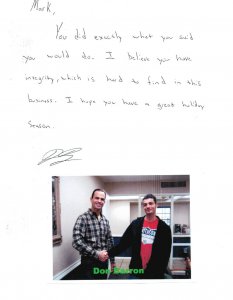 Mark,
You did exactly what you said
you would do. I believe you have
integrity, which is hard to find in this
business. I hope you have a great holiday
season.
Don Barron